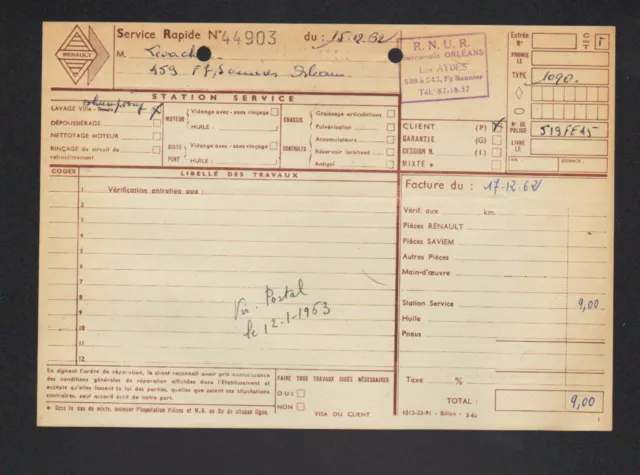 RENAULT
Service Rapide N° 44903 du : 15.12.62
M.
459 Fg Orléans
R. N. U. R.
Succursale ORLÉANS
Les AYDES
539 à 543, Fg Bannier
Tél. 87.18.57
Entrée N°
C T
PROMISE LE
TYPE 1090.
N° DE POLICE 519FE45
LIVRE LE
P/A.
ESSENCE.
STATION SERVICE
LAVAGE shampoing
DÉPOUSSIÉRAGE
NETTOYAGE MOTEUR
RINÇAGE du circuit de refroidissement
MOTEUR
Vidange avec - sans rinçage
HUILE :
BOITE
PONT
Vidange avec - sans rinçage
HUILE :
CHASSIS
CONTROLES
Graissage articulations
Pulvérisation
Accumulateurs
Réservoir lockheed
Antigel
CLIENT (P) X
GARANTIE (G)
CESSION N. (I)
MIXTE *
CODES
LIBELLÉ DES TRAVAUX
1 Vérification entretien aux :
2
3
4
5
6
7
8
9
10
11
12
Vir. Postal
le 12-1-1963
Facture du : 17.12.62
Vérif. aux km.
Pièces RENAULT
Pièces SAVIEM
Autres Pièces
Main-d'œuvre
Station Service 9,00
Huile
Pneus
Taxe %
TOTAL : 9,00
En signant l'ordre de réparation, le client reconnaît avoir pris connaissance
des conditions générales de réparation affichées dans l'Etablissement et
accepte qu'elles fassent la loi des parties, quelles que soient ses stipulations
contraires, sauf accord écrit de notre part.
* Dans le cas de mixte, indiquer l'imputation Pièces et M.O. au bout de chaque ligne.
FAIRE TOUS TRAVAUX JUGÉS NÉCESSAIRES
OUI
NON
VISA DU CLIENT